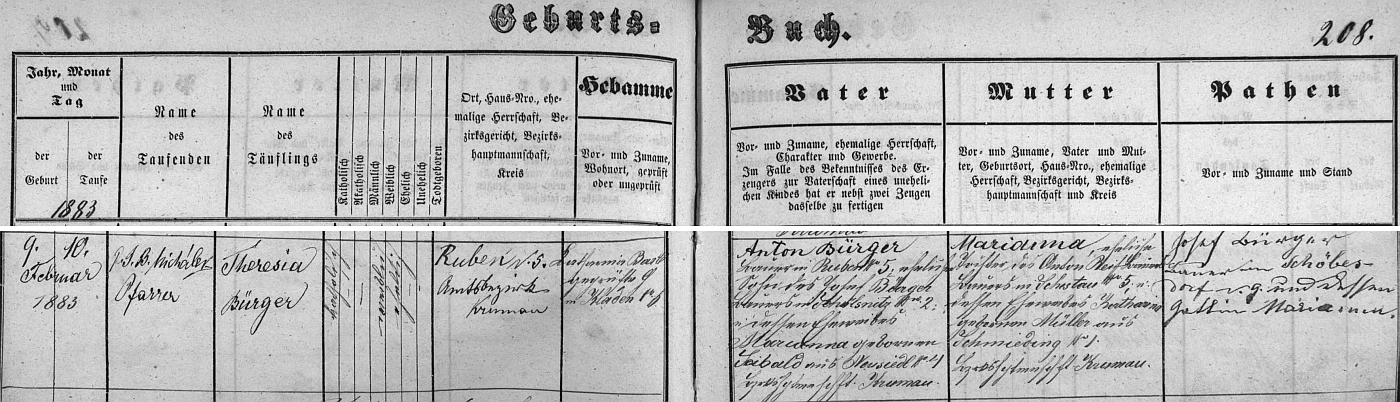 Geburts-
Buch.
208.
Jahr, Monat
und
Tag
der
Geburt
der
Taufe
1883
Name
des
Taufenden
Name
des
Täuflings
Katholisch
Akatholisch
Männlich
Weiblich
Ehelich
Unehelich
Todtgeboren
Ort, Haus-Nro., ehe-
malige Herrschaft, Be-
zirksgericht, Bezirks-
hauptmannschaft,
Kreis
Hebamme
Vor- und Zuname,
Wohnort, geprüft
oder ungeprüft
Vater
Vor- und Zuname, ehemalige Herrschaft,
Charakter und Gewerbe.
Im Falle des Bekenntnisses des Er-
zeugers zur Vaterschaft eines uneheli-
chen Kindes hat er nebst zwei Zeugen
dasselbe zu fertigen
Mutter
Vor- und Zuname, Vater und Mut-
ter, Geburtsort, Haus-Nro., ehemalige
Herrschaft, Bezirksgericht, Bezirks-
hauptmannschaft und Kreis
Pathen
Vor- und Zuname und Stand
9. 10.
Februar
1883
Pfarrer
Theresia
Bürger
Ruben N. 5.
Amtsbezirk
Krumau
Katharina
geprüfte
in
Anton Bürger
Bauer in Ruben N. 5, ehelicher
Sohn des Josef Bürger
Bauers in N. 2.
u. dessen Eheweibes
Marianna geborenen
Seibald aus Neusiedl N. 4
Krumau.
Marianna, eheliche
Tochter des Anton
Bauers in N. 5, u.
dessen Eheweibes Katharina
geborenen Müller aus
Schmieding N. 1.
Krumau.
Josef Bürger
Bauer in Schöbes-
dorf N. 9. und dessen
Gattin Marianna.